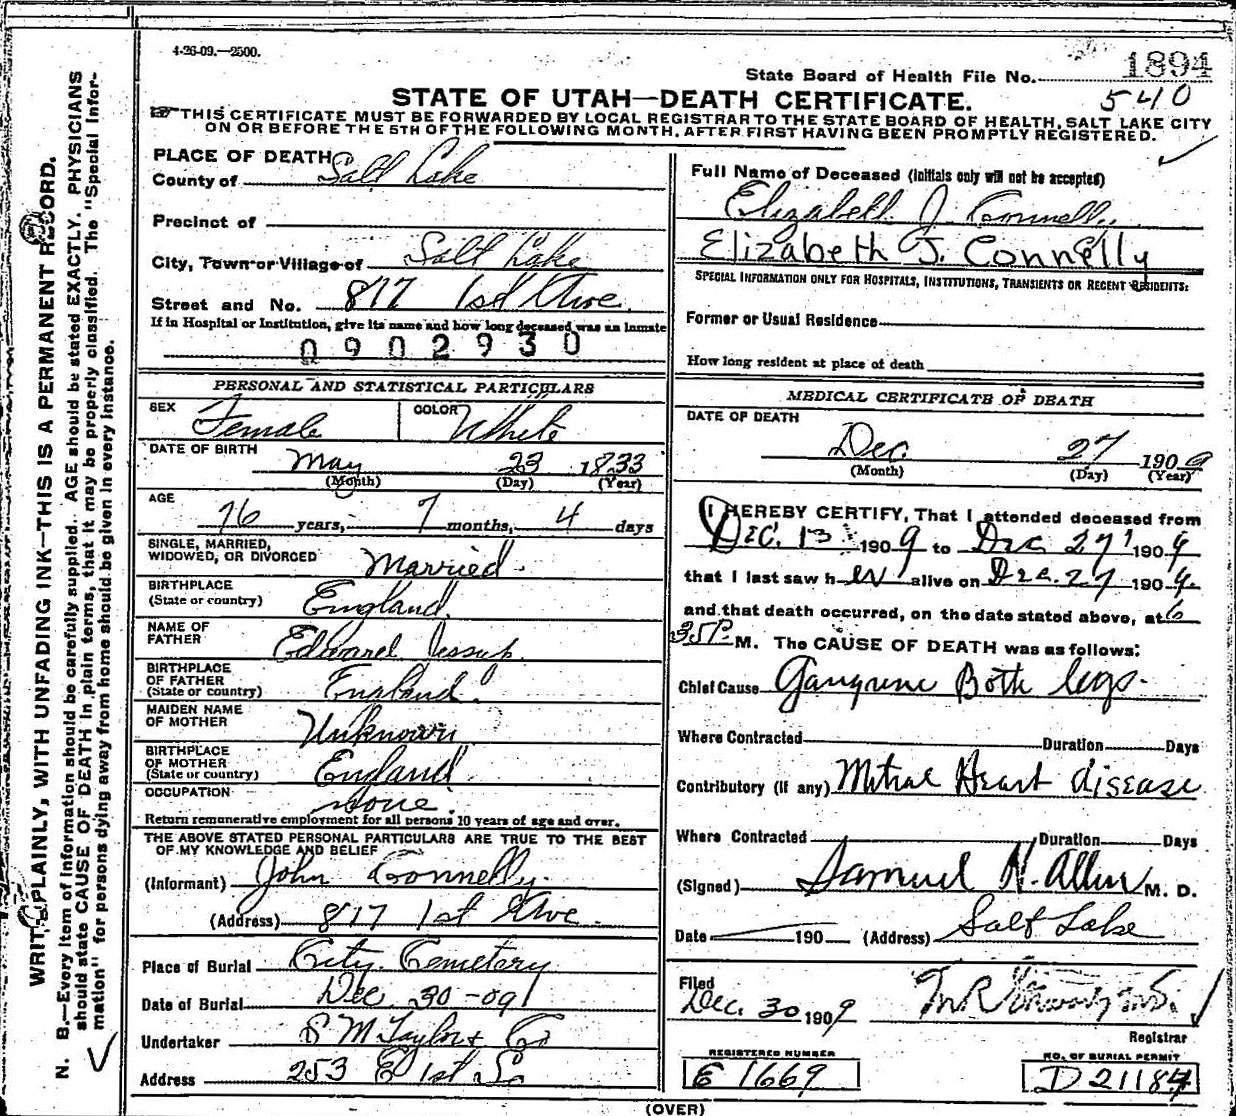 4-26-09.—2500.
State Board of Health File No. 1894
540
STATE OF UTAH—DEATH CERTIFICATE.
THIS CERTIFICATE MUST BE FORWARDED BY LOCAL REGISTRAR TO THE STATE BOARD OF HEALTH, SALT LAKE CITY
ON OR BEFORE THE 5TH OF THE FOLLOWING MONTH, AFTER FIRST HAVING BEEN PROMPTLY REGISTERED.
WRITE PLAINLY, WITH UNFADING INK—THIS IS A PERMANENT RECORD.
N. B.—Every item of information should be carefully supplied. AGE should be stated EXACTLY. PHYSICIANS
should state CAUSE OF DEATH in plain terms, that it may be properly classified. The "Special Infor-
mation" for persons dying away from home should be given in every instance.
PLACE OF DEATH
County of Salt Lake
Precinct of
City, Town or Village of Salt Lake
Street and No. 817 1st Ave.
If in Hospital or Institution, give its name and how long deceased was an inmate
0902930
PERSONAL AND STATISTICAL PARTICULARS
SEX Female COLOR White
DATE OF BIRTH
May 23 1833
(Month) (Day) (Year)
AGE
76 years, 7 months, 4 days
SINGLE, MARRIED,
WIDOWED, OR DIVORCED Married.
BIRTHPLACE
(State or country) England.
NAME OF
FATHER Edward Jessup.
BIRTHPLACE
OF FATHER
(State or country) England
MAIDEN NAME
OF MOTHER Unknown
BIRTHPLACE
OF MOTHER
(State or country) England
OCCUPATION
None.
Return remunerative employment for all persons 10 years of age and over.
THE ABOVE STATED PERSONAL PARTICULARS ARE TRUE TO THE BEST
OF MY KNOWLEDGE AND BELIEF
(Informant) John Connelly.
(Address) 817 1st Ave.
Place of Burial City Cemetery
Date of Burial Dec 30-09
Undertaker S M Taylor & Co
Address 253 E 1st So
Full Name of Deceased (Initials only will not be accepted)
Elizabeth J. Connelly
Elizabeth J. Connelly
SPECIAL INFORMATION ONLY FOR HOSPITALS, INSTITUTIONS, TRANSIENTS OR RECENT RESIDENTS:
Former or Usual Residence
How long resident at place of death
MEDICAL CERTIFICATE OF DEATH
DATE OF DEATH
Dec. 27 1909
(Month) (Day) (Year)
I HEREBY CERTIFY, That I attended deceased from
Dec. 13 1909 to Dec 27 1909
that I last saw her alive on Dec. 27 1909.
and that death occurred, on the date stated above, at 6
35P. M. The CAUSE OF DEATH was as follows:
Chief Cause Gangrene Both legs.
Where Contracted Duration Days
Contributory (if any) Mitral Heart disease
Where Contracted Duration Days
(Signed) Samuel H. Allen M. D.
Date 190 (Address) Salt Lake
Filed
Dec. 30 1909
Registrar
REGISTERED NUMBER
E 1669
NO. OF BURIAL PERMIT
D 21184
(OVER)